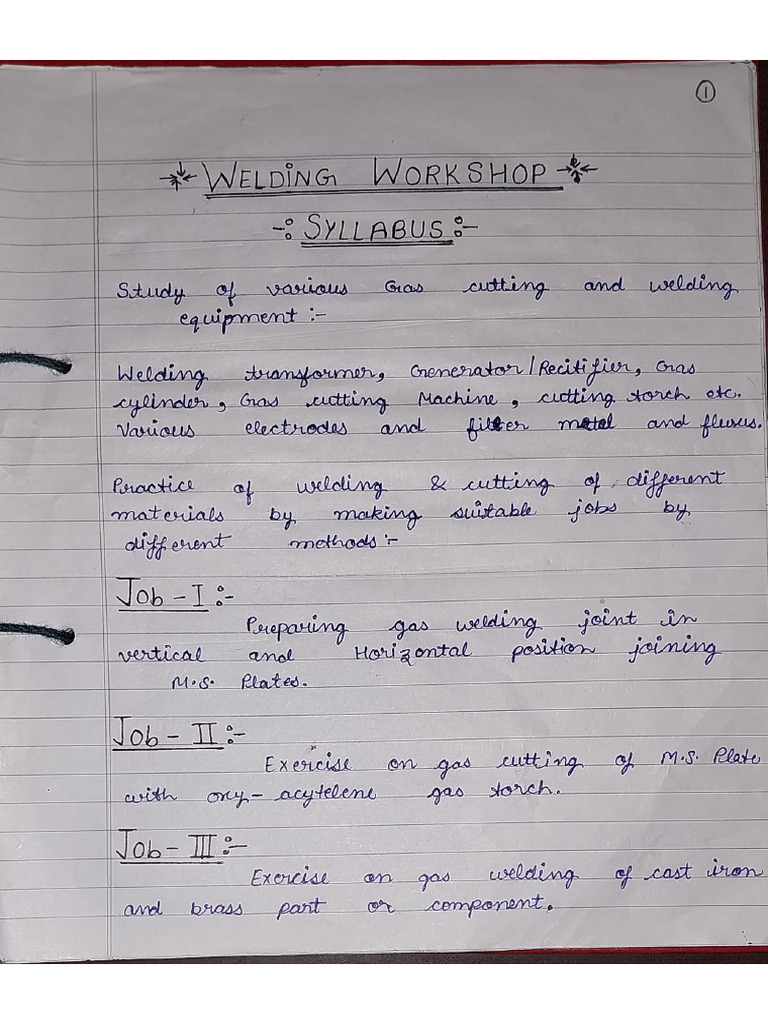 1
WELDiNG WORKSHOP
-: SYLLABUS :-
Study of various Gas cutting and welding
equipment :-
Welding transformer, Generator/Recitifier, Gas
cylinder, Gas cutting Machine, cutting torch etc.
Various electrodes and filler metal and fluxus.
Practice of welding & cutting of different
materials by making suitable jobs by
different methods :-
Job - I :-
Preparing gas welding joint in
vertical and Horizontal position joining
M.S. Plates.
Job - II :-
Exercise on gas cutting of M.S. Plate
with oxy-acytelene gas torch.
Job - III :-
Exercise on gas welding of cast iron
and brass part or component.